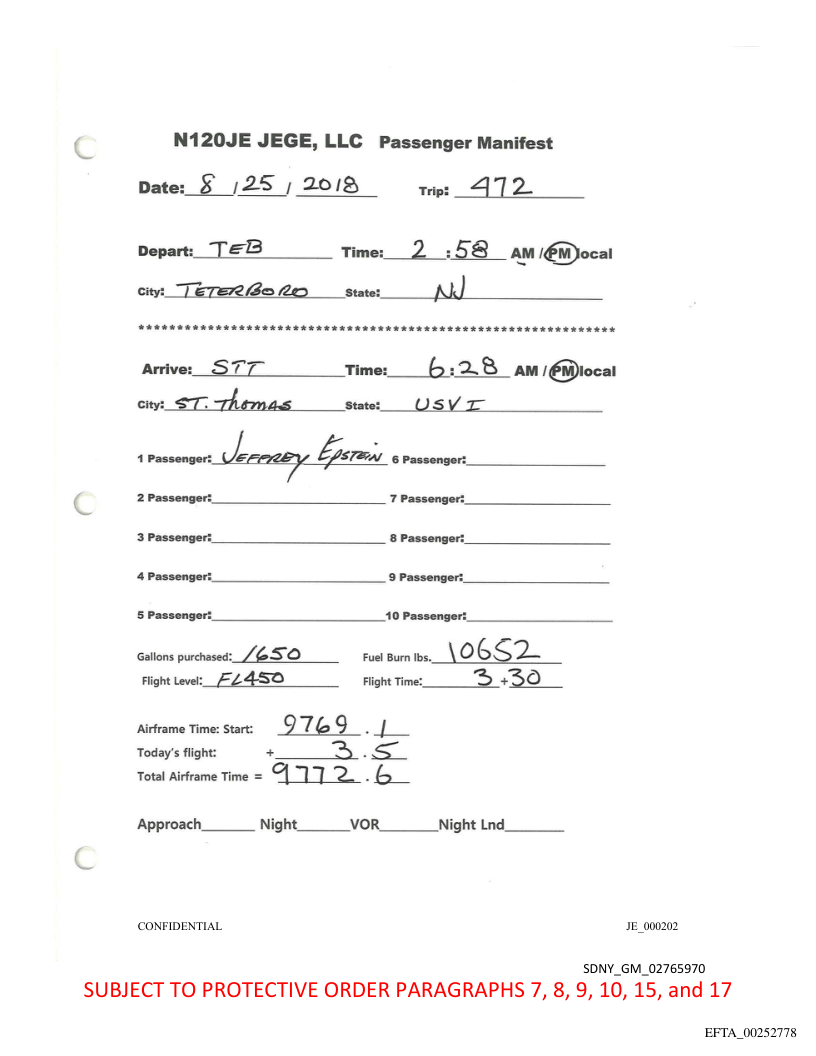 N120JE JEGE, LLC Passenger Manifest
Date: 8 / 25 / 2018 Trip: 472
Depart: TEB Time: 2 :58 AM / PM local
City: TETERBORO State: NJ
************************************************************
Arrive: STT Time: 6:28 AM / PM local
City: ST. Thomas State: USVI
1 Passenger: JEFFREY EPSTEIN 6 Passenger:
2 Passenger: 7 Passenger:
3 Passenger: 8 Passenger:
4 Passenger: 9 Passenger:
5 Passenger: 10 Passenger:
Gallons purchased: 1650 Fuel Burn lbs. 10652
Flight Level: FL450 Flight Time: 3 +30
Airframe Time: Start: 9769 . 1
Today's flight: + 3 . 5
Total Airframe Time = 9772 . 6
Approach Night VOR Night Lnd
CONFIDENTIAL JE_000202
SDNY_GM_02765970
SUBJECT TO PROTECTIVE ORDER PARAGRAPHS 7, 8, 9, 10, 15, and 17
EFTA_00252778